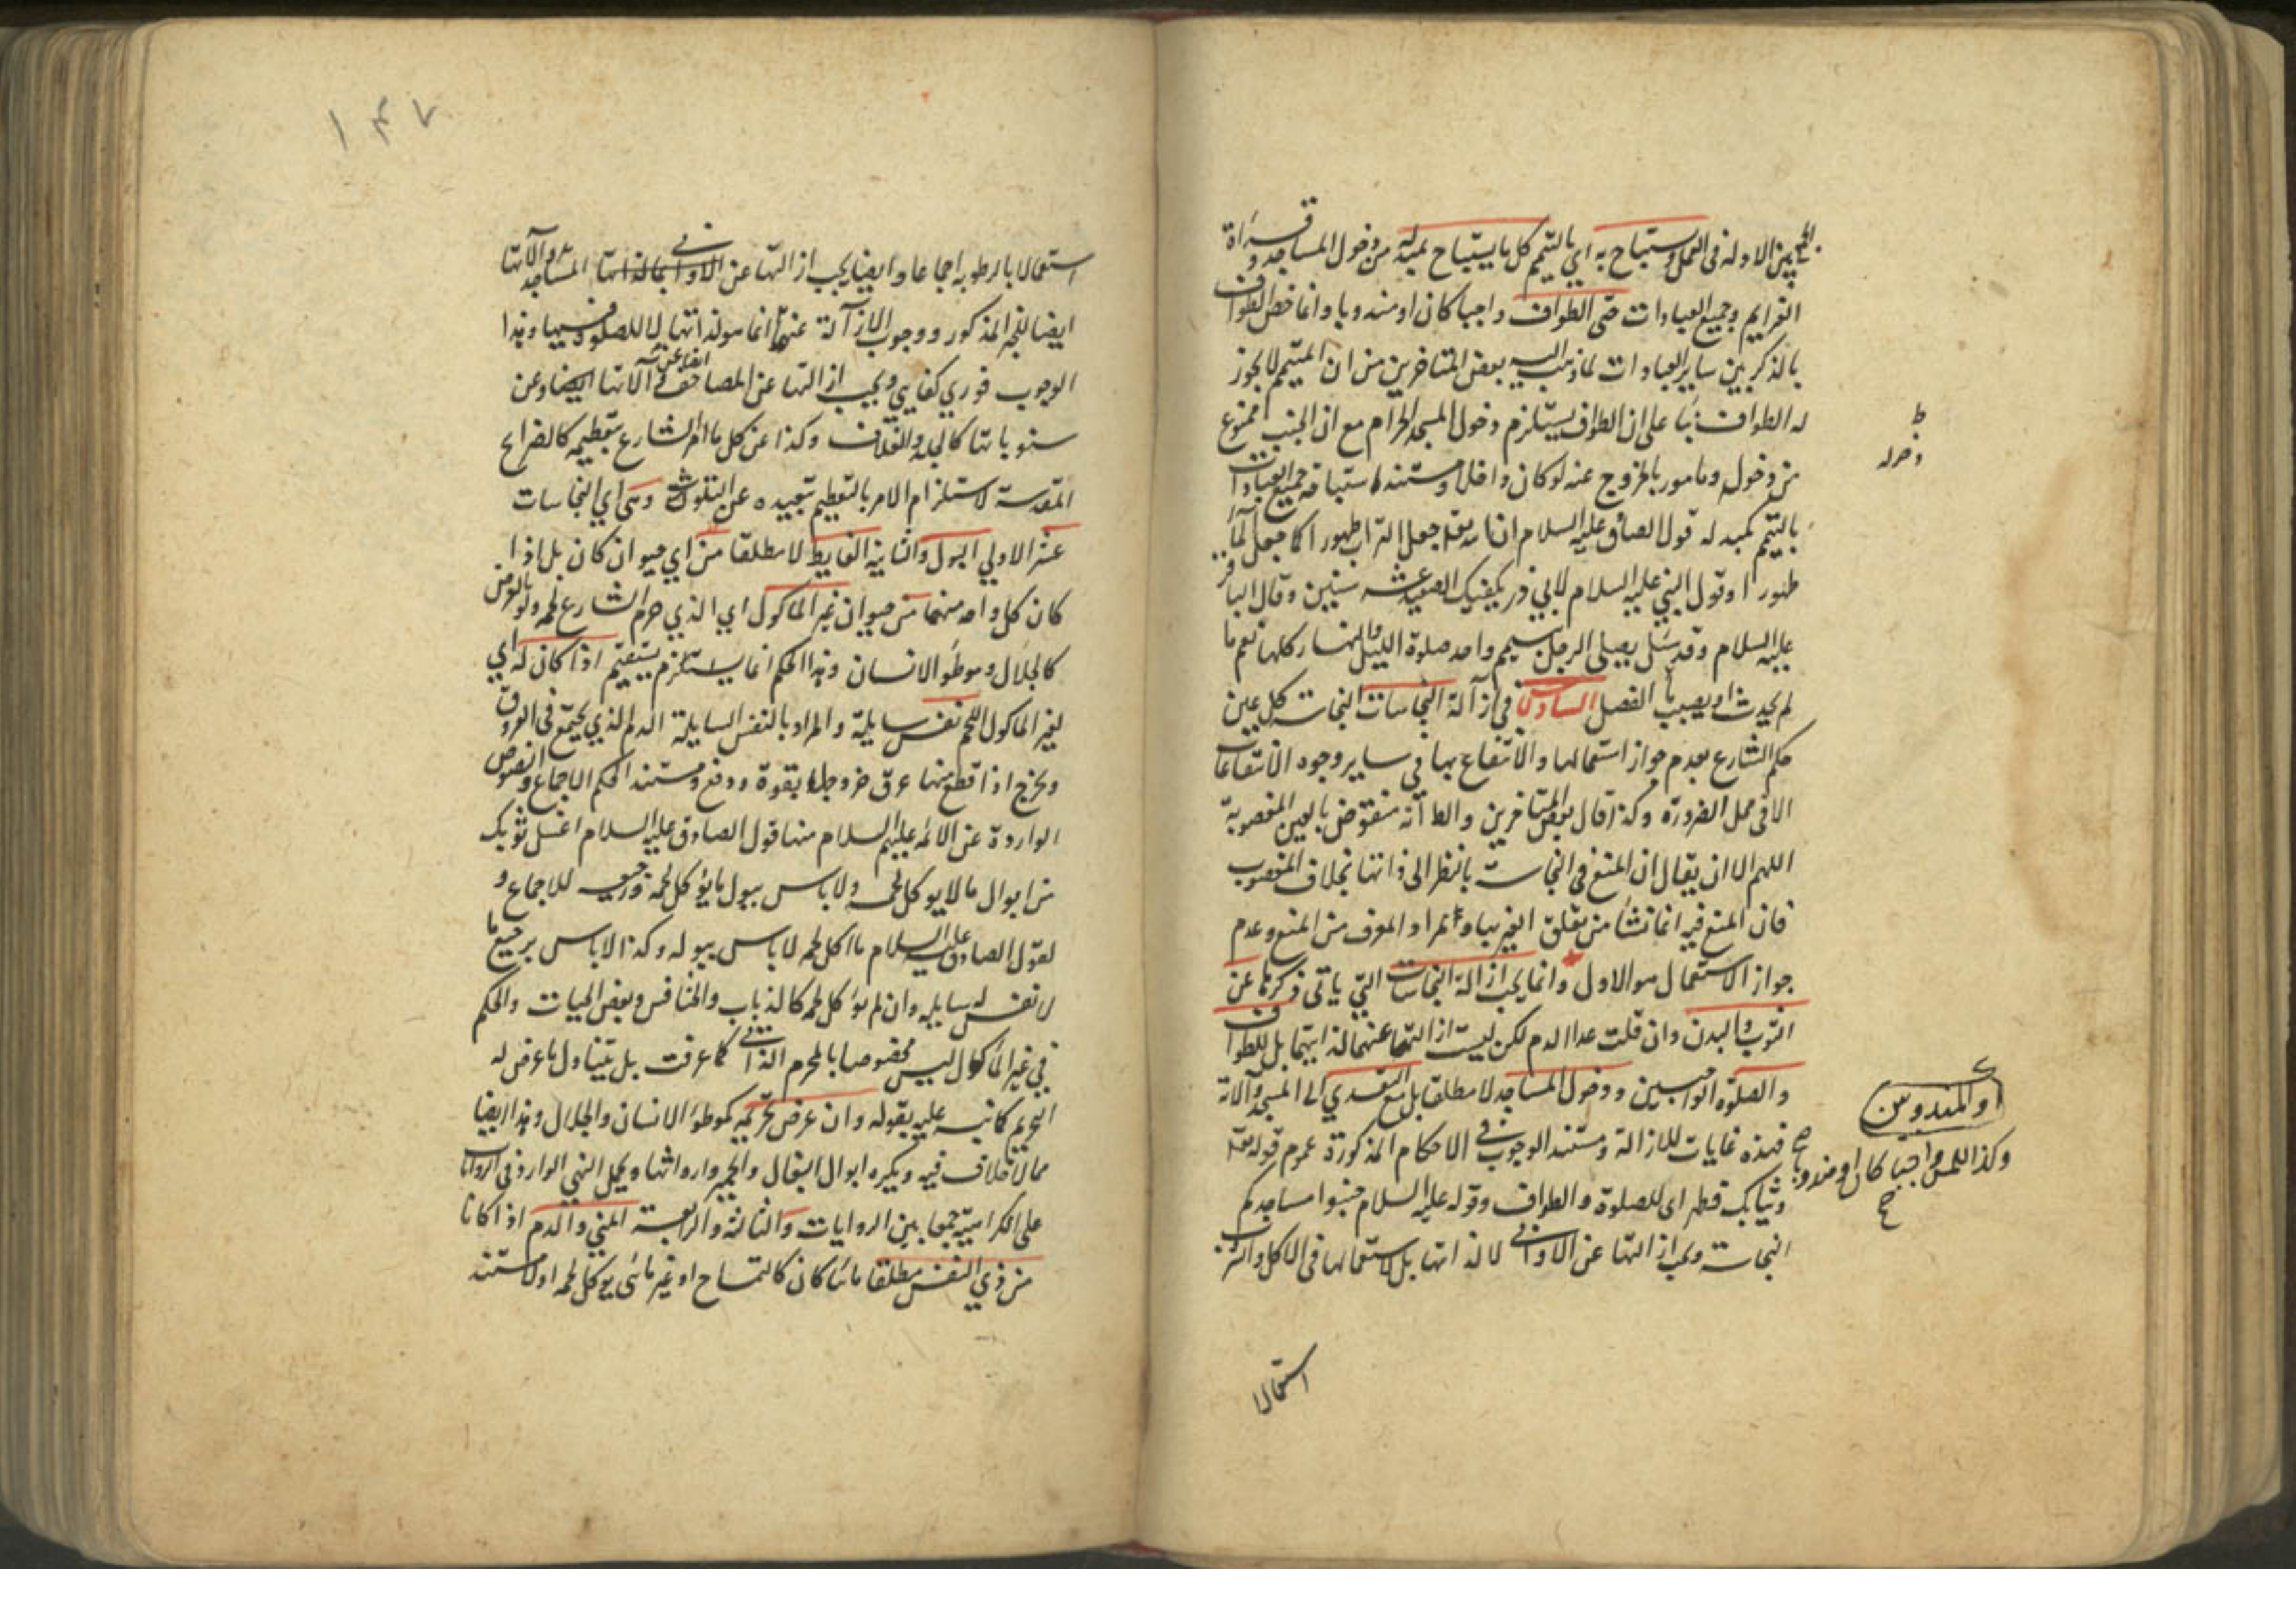 الجمع بين الادلة في العمل ويستباح به اي بالتيمم كل ما يستباح بمبدله من دخول المساجد وقراءة
العزايم وجميع العبادات حتى الطواف واجبا كان او مندوبا وانما خص الطواف
بالذكر من بين ساير العبادات لما ذهب اليه بعض المتاخرين من ان المتيمم لا يجوز
له الطواف بناء على ان الطواف يستلزم دخول المسجد الحرام مع ان الجنب ممنوع
من دخول ومامور بالخروج عنه لو كان داخلا ومستند استباحة جميع العبادات
بالتيمم كمبدله قول الصادق عليه السلام ان الله تعالى جعل التراب طهورا كما جعل الماء
طهورا وقول النبي عليه السلام لابي ذر يكفيك الصعيد عشر سنين وقال الباقر
عليه السلام وقد سئل يصلي الرجل بتيمم واحد صلوة الليل والنهار كلها نعم ما
لم يحدث او يصيب ماء الفصل السادس في ازالة النجاسات النجاسة كل عين
حكم الشارع بعدم جواز استعمالها والانتفاع بها في ساير وجوه الانتفاعات
الا في محل الضرورة وكذا قال بعض المتاخرين والظ انه منقوض بالعين المغصوبة
اللهم الا ان يقال ان المنع في النجاسة بالنظر الى ذاتها بخلاف المغصوب
فان المنع فيه انما نشأ من تعلق الغير بها ومراد المعرف من المنع وعدم
جواز الاستعمال هو الاول وانما يجب ازالة النجاسات التي ياتي ذكرها عن
الثوب والبدن وان قلت عدا الدم لكن ليست ازالتها عنهما لذاتيهما بل للطواف
والصلوة الواجبين ودخول المساجد لا مطلقا بل مع التعدي الى المسجد وآلاته
فهذه غايات للازالة ومستند الوجوب في الاحكام المذكورة عموم قوله تعالى
وثيابك فطهر اي للصلوة والطواف وقوله عليه السلام جنبوا مساجدكم
النجاسة ويجب ازالتها عن الاواني لا لذاتها بل لاستعمالها في الاكل والشرب
استعمالا
ظ
دخوله
او المندوبين
وكذا اللمس واجبا كان او مندوبا صح
١٤٧
استعمالا بالرطوبة اجماعا وايضا يجب ازالتها عن المساجد وآلاتها
ايضا للخبر المذكور ووجوب الازالة عنها انما هو لذاتها لا للصلوة فيها وهذا
الوجوب فوري كفايي ويجب ازالتها ايضا عن المصاحف وآلاتها وعن
منسوباتها كالجلد والغلاف وكذا عن كل ما امر الشارع بتعظيمه كالضرايح
المقدسة لاستلزام الامر بالتعظيم تبعيده عن التلوث وهي اي النجاسات
عشر الاولى البول والثانية الغايط لا مطلقا من اي حيوان كان بل اذا
كان كل واحد منهما من حيوان غير الماكول اي الذي حرم الشارع لحمه ولو بالعرض
كالجلال وموطؤ الانسان وهذا الحكم انما يستلزم اذا كان له اي
لغير الماكول اللحم نفس سايلة والمراد بالنفس السايلة الدم الذي يجتمع في العروق
ويخرج اذا قطع منها عرق خروجا بقوة ودفع ومستند الحكم الاجماع والنصوص
الواردة عن الائمة عليهم السلام منها قول الصادق عليه السلام اغسل ثوبك
من ابوال ما لا يوكل لحمه ولا باس ببول ما يؤكل لحمه ورجيعه للاجماع و
لقول الصادق عليه السلام ما اكل لحمه لا باس ببوله وكذا لا باس برجيع ما
لا نفس له سايله وان لم يؤكل لحمه كالذباب والخنافس وبعض الحيات والحكم
في غير الماكول ليس مخصوصا بالمحرم الذاتي كما عرفت بل يتناول ما عرض له
التحريم كما نبه عليه بقوله وان عرض تحريمه كموطؤ الانسان والجلال وهذا ايضا
مما لا خلاف فيه ويكره ابوال البغال والحمير وارواثها ويحمل النهي الوارد في الروايات
على الكراهية جمعا بين الروايات والثالثة والرابعة المني والدم اذا كانا
من ذي النفس مطلقا مائيا كان كالتمساح او غير مائي يوكل لحمه او لا ومستند